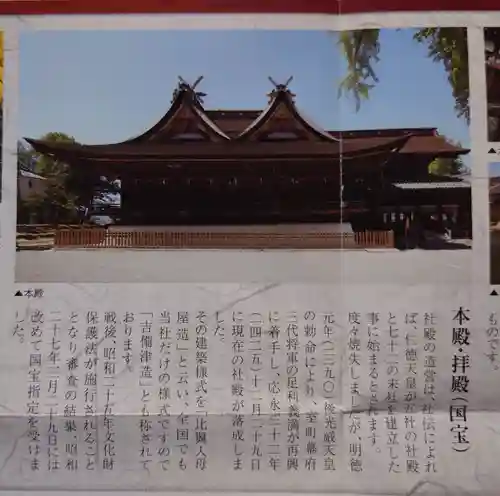 ものです。
本殿・拝殿(国宝)
社殿の造営は、社伝によれ
ば、仁徳天皇が五社の社殿
と七十二の末社を建立した
事に始まるとされます。
度々焼失しましたが、明徳
元年(一三九〇)後光厳天皇
の勅命により、室町幕府
三代将軍の足利義満が再興
に着手し、応永三十二年
(一四二五)十二月二十九日
に現在の社殿が落成しま
した。
その建築様式を「比翼入母
屋造」と云い、全国でも
当社だけの様式ですので
「吉備津造」とも称されて
おります。
戦後、昭和二十五年文化財
保護法が施行されること
となり審査の結果、昭和
二十七年二月二十九日には
改めて国宝指定を受けま
した。
▲本殿